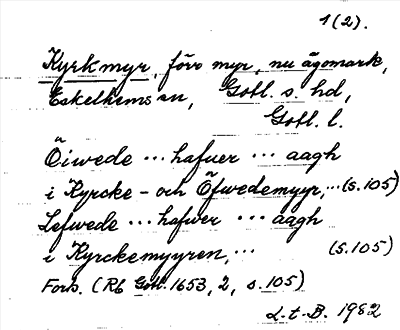 1(2).
Kyrkmyr, förr myr, nu ägomark,
Eskelhems sn, Gotl. s. hd,
Gotl. l.
Öiwede ... hafuer ... aagh
i Kyrcke- och Öfwedemyyr, ... (s.105)
Lefwede ... hafwer ... aagh
i Kyrckemyyren, ... (s.105)
Fork. (Rb Gotl. 1653, 2, s. 105)
L.t.B. 1982